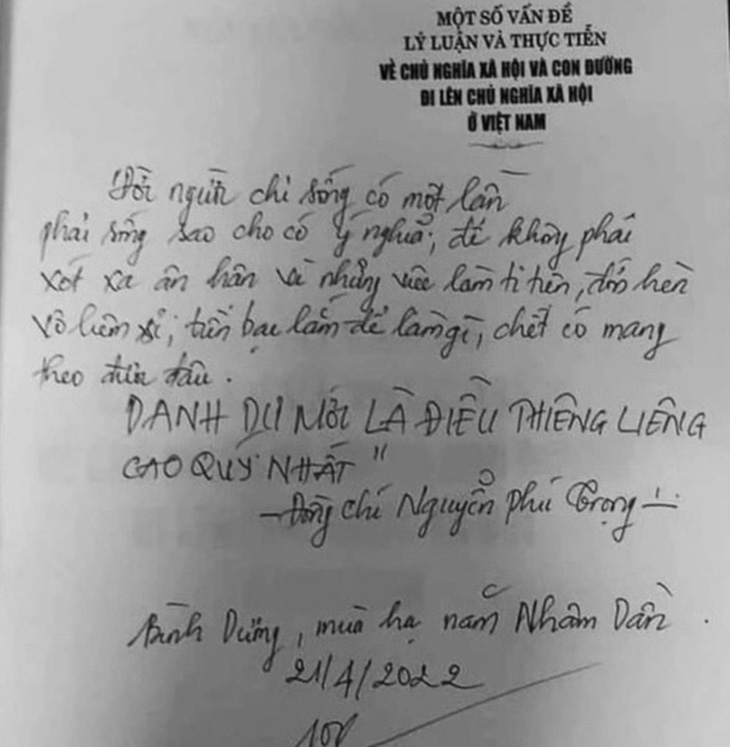 MỘT SỐ VẤN ĐỀ
LÝ LUẬN VÀ THỰC TIỄN
VỀ CHỦ NGHĨA XÃ HỘI VÀ CON ĐƯỜNG
ĐI LÊN CHỦ NGHĨA XÃ HỘI
Ở VIỆT NAM
"Đời người chỉ sống có một lần
phải sống sao cho có ý nghĩa, để không phải
xót xa ân hận vì những việc làm ti tiện, đớn hèn
vô liêm sỉ; tiền bạc lắm để làm gì, chết có mang
theo được đâu.
DANH DỰ MỚI LÀ ĐIỀU THIÊNG LIÊNG
CAO QUÝ NHẤT"
- Đồng chí Nguyễn Phú Trọng -
Bình Dương, mùa hạ năm Nhâm Dần.
21/4/2022